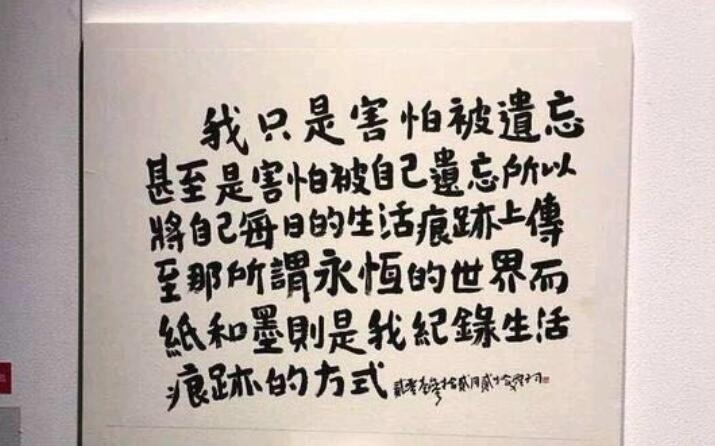 我只是害怕被遺忘
甚至是害怕被自己遺忘所以
將自己每日的生活痕跡上傳
至那所謂永恆的世界而
紙和墨則是我紀錄生活
痕跡的方式